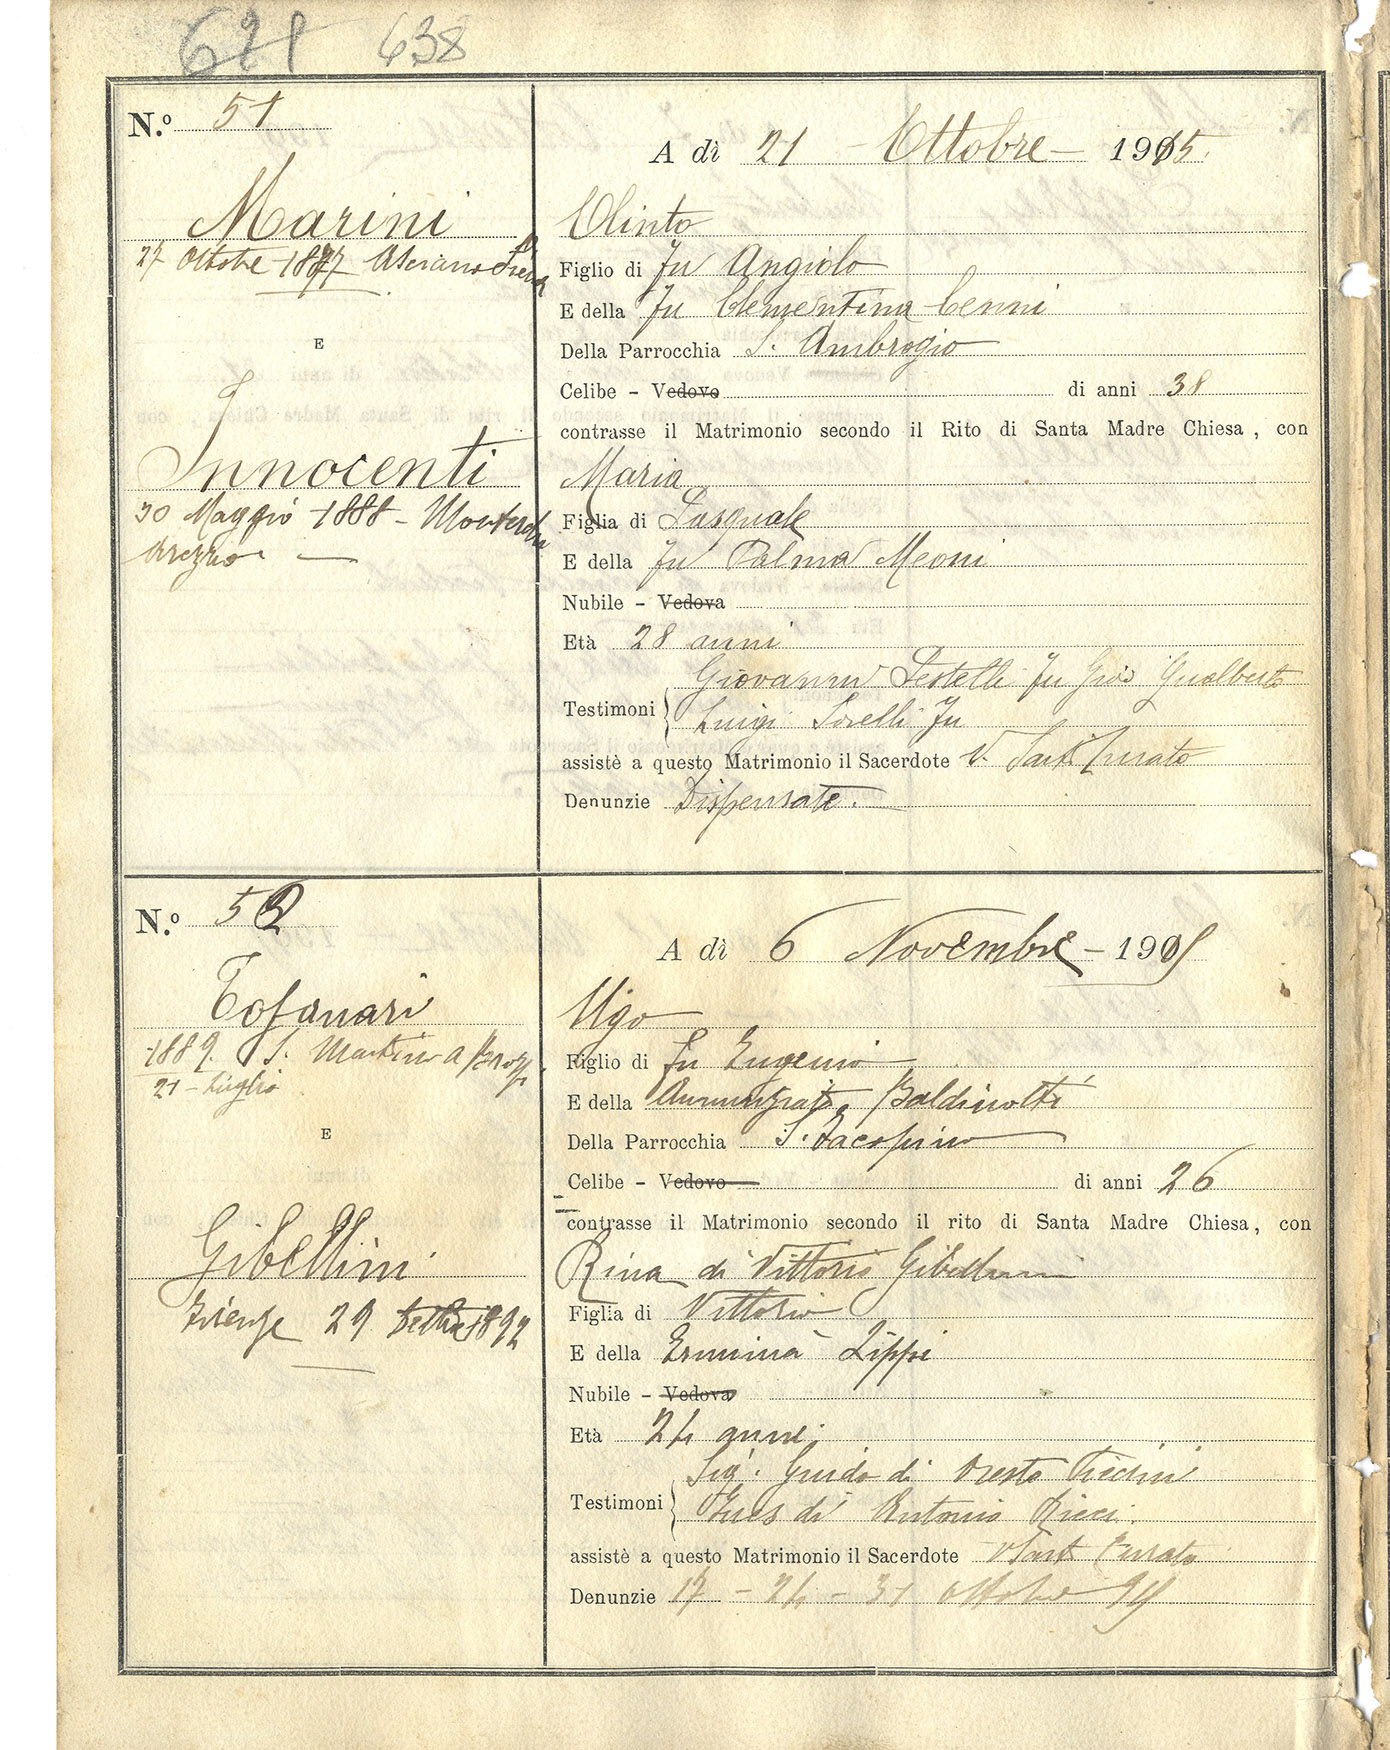 638
N.º 51
A dì 21 Ottobre 1915.
Marini
Olinto
27 Ottobre 1877 Asciano Siena
Figlio di fu Angiolo
E della fu Clementina Cenni
E
Della Parrocchia S. Ambrogio
Celibe - Vedovo di anni 38
contrasse il Matrimonio secondo il Rito di Santa Madre Chiesa, con
Innocenti
Maria
30 Maggio 1888 -
Arezzo
Figlia di Pasquale
E della fu Palma Meoni
Nubile - Vedova
Età 28 anni
Giovanni Pestelli fu Gualberto
Testimoni
Luigi Sorelli fu
assistè a questo Matrimonio il Sacerdote V. Sarti Curato
Denunzie Dispensate.
N.º 52
A dì 6 Novembre - 1915
Tofanari
Ugo
1889. S. Martino a Brozzi
21 - Luglio
Figlio di fu Eugenio
E della Annunziata Baldinotti
E
Della Parrocchia S. Jacopino
Celibe - Vedovo di anni 26
contrasse il Matrimonio secondo il rito di Santa Madre Chiesa, con
Gibellini
Rina di Vittorio Gibellini
Firenze 29 1892
Figlia di Vittorio
E della Erminia Lippi
Nubile - Vedova
Età 24 anni
Sig. Guido di Oreste
Testimoni
Ines di Antonio Ricci.
assistè a questo Matrimonio il Sacerdote V Sarti Curato
Denunzie 17 - 24 - 31 ottobre 915